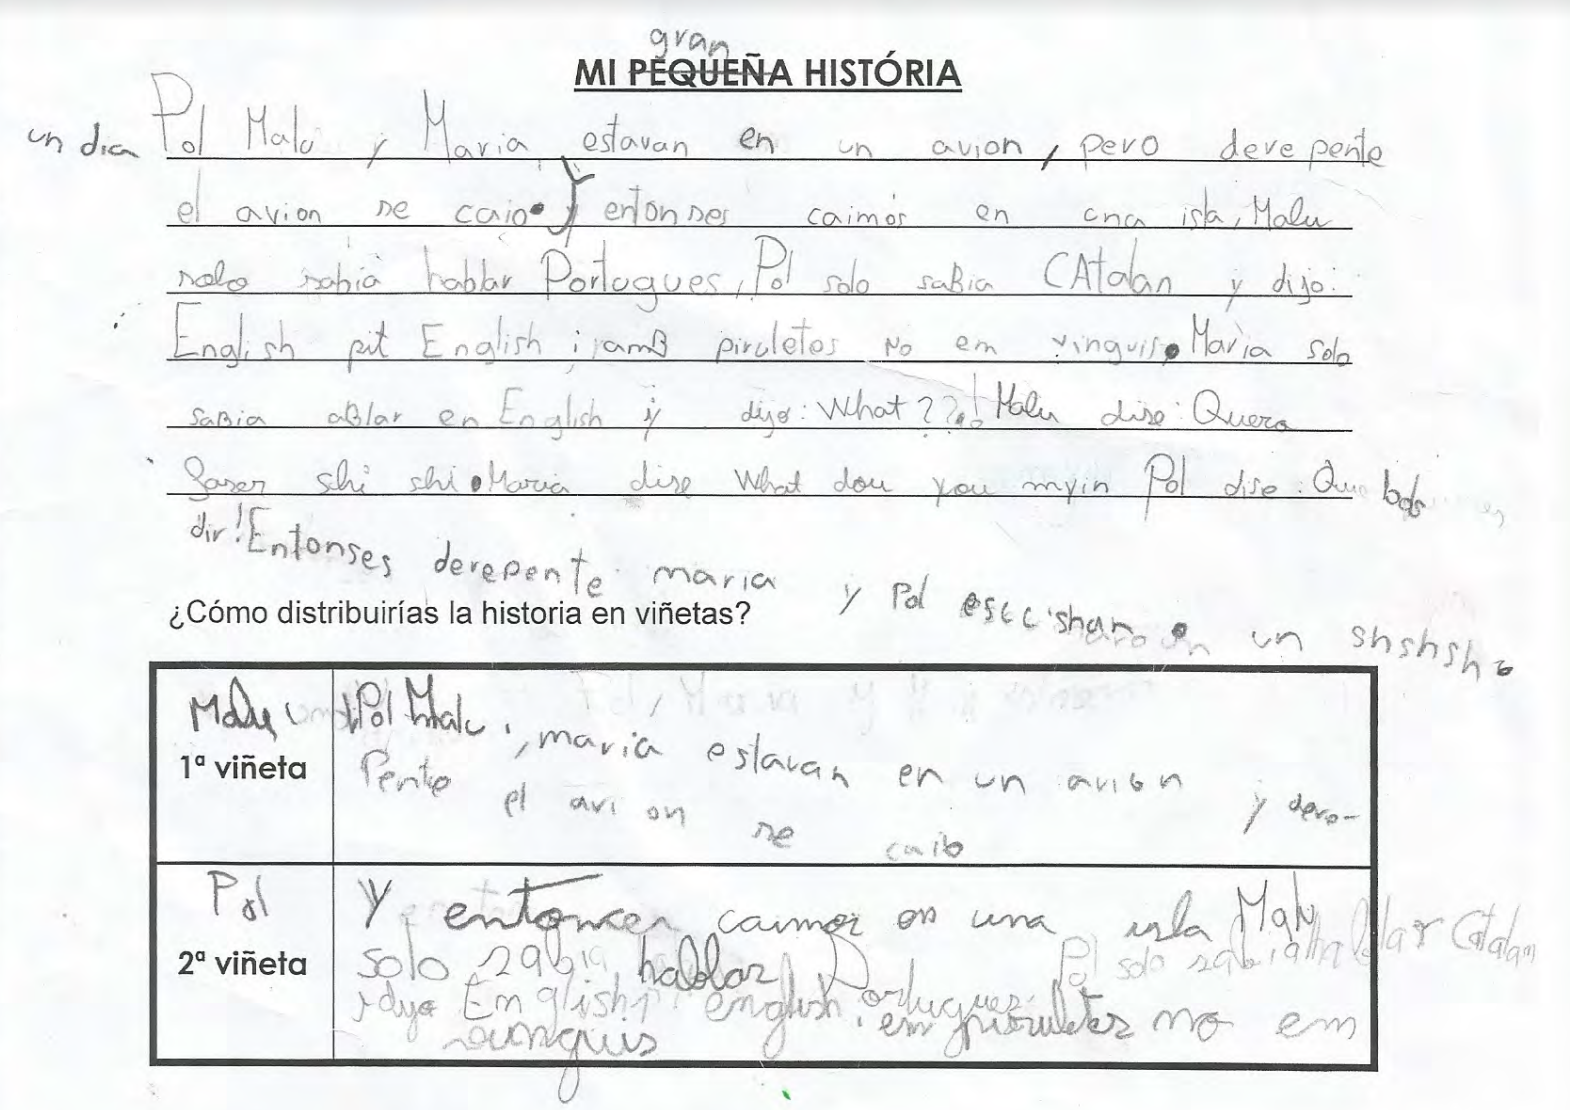 gran
MI PEQUEÑA HISTÓRIA
un dia Pol Malu y Maria estavan en un avion, pero derepente
el avion se caio. Y entonses caimos en una isla, Malu
solo sabia hablar Portugues, Pol solo saBia CAtalan y dijo:
English pit English i amB piruletes No em vinguis. Maria solo
saBia aBlar en English y dijo: What??! Malu dise: Quero
faser shi shi. Maria dise What dou you myin Pol dise: Que
dir! Entonses derepente maria y Pol un shshsh
¿Cómo distribuirías la historia en viñetas?
Malu
1ª viñeta
Pol Malu, maria estavan en un avion y dere-
Pente el avion se caio
Pol
2ª viñeta
Y entonces caimos en una isla Malu
solo sabia hablar Portugues. Pol solo sabia hablar Catalan
y dijo English english. em piruletes no em